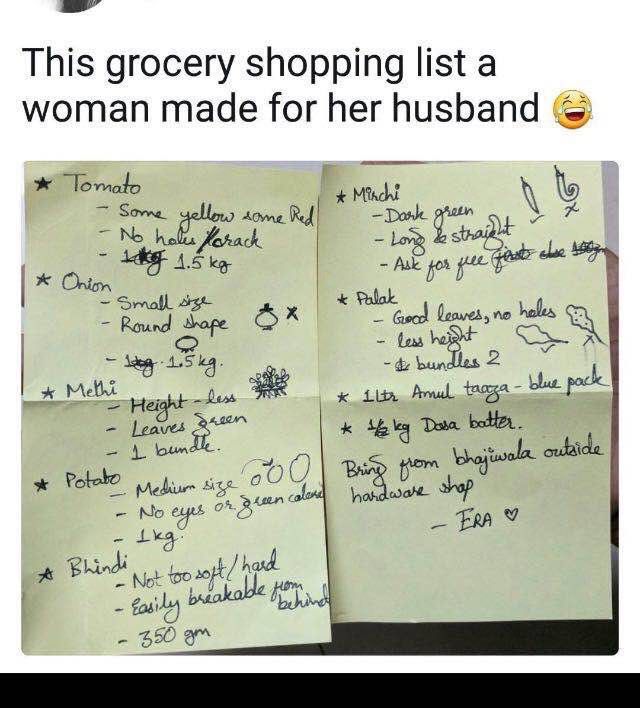 This grocery shopping list a
woman made for her husband 😂
★ Tomato
- Some yellow some Red
- No holes/crack
- 1.5 kg
★ Onion
- Small size
- Round shape
- 1.5 kg.
★ Methi
- Height - less
- Leaves green
- 1 bundle.
★ Potato
- Medium size
- No eyes or green colored
- 1 kg.
★ Bhindi
- Not too soft/hard
- Easily breakable from
behind
- 350 gm
★ Mirchi
- Dark green
- Long & straight
- Ask for free
★ Palak
- Good leaves, no holes
- less height
- bundles 2
★ 1 ltr Amul taaza - blue pack
★ 1/2 kg Dosa batter.
Bring from bhajiwala outside
hardware shop
- ERA ♡